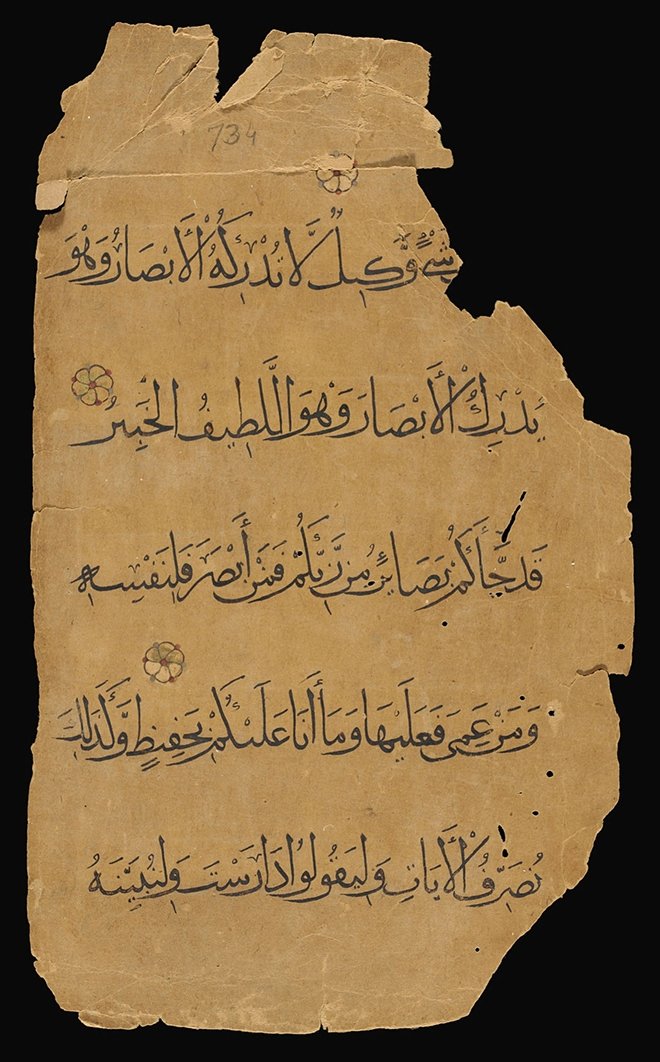 734
شَيْءٍ وَّكِيلٌ لَّا تُدْرِكُهُ الْأَبْصَارُ وَهُوَ
يُدْرِكُ الْأَبْصَارَ وَهُوَ اللَّطِيفُ الْخَبِيرُ
قَدْ جَّآءَكُمْ بَصَائِرُ مِن رَّبِّكُمْ فَمَنْ أَبْصَرَ فَلِنَفْسِهِ
وَمَنْ عَمِيَ فَعَلَيْهَا وَمَا أَنَا عَلَيْكُمْ بِحَفِيظٍ وَّكَذَلِكَ
نُصَرِّفُ الْأَيَاتِ وَلِيَقُولُوا دَارَسْتَ وَلِنُبَيِّنَهُ